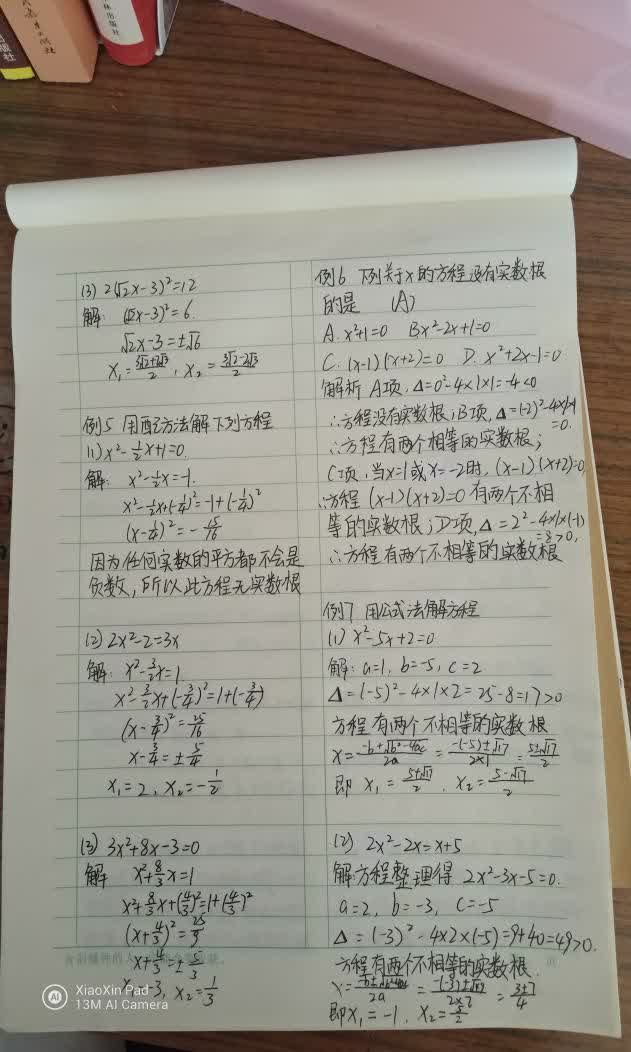 (3) 2(√2x-3)²=12
解: (√2x-3)²=6.
√2x-3=±√6
x₁=(3√2+2√3)/2, x₂=(3√2-2√3)/2
例5 用配方法解下列方程
(1) x²-1/2x+1=0.
解: x²-1/2x=-1.
x²-1/2x+(-1/4)²=-1+(-1/4)²
(x-1/4)²=-15/16
因为任何实数的平方都不会是
负数,所以此方程无实数根
(2) 2x²-2=3x
解: x²-3/2x=1
x²-3/2x+(-3/4)²=1+(-3/4)
(x-3/4)²=25/16
x-3/4=±5/4
x₁=2, x₂=-1/2
(3) 3x²+8x-3=0
解 x²+8/3x=1
x²+8/3x+(4/3)²=1+(4/3)²
(x+4/3)²=25/9
x+4/3=±5/3
-3, x₂=1/3
例6 下列关于x的方程没有实数根
的是 (A)
A. x²+1=0 B x²-2x+1=0
C. (x-1)(x+2)=0 D. x²+2x-1=0
解析 A项,Δ=0²-4×1×1=-4<0
∴方程没有实数根;B项,Δ=(-2)²-4×1×1
=0.
∴方程有两个相等的实数根;
C项,当x=1或x=-2时,(x-1)(x+2)=0,
∴方程(x-1)(x+2)=0有两个不相
等的实数根;D项,Δ=2²-4×1×(-1)
=8>0,
∴方程有两个不相等的实数根
例7 用公式法解方程
(1) x²-5x+2=0
解: a=1, b=-5, c=2
Δ=(-5)²-4×1×2=25-8=17>0
方程有两个不相等的实数根
x=(-b±√b²-4ac)/2a=(-(-5)±√17)/(2×1)=(5±√17)/2
即 x₁=(5+√17)/2, x₂=(5-√17)/2
(2) 2x²-2x=x+5
解方程整理得 2x²-3x-5=0.
a=2, b=-3, c=-5
Δ=(-3)²-4×2×(-5)=9+40=49>0.
方程有两个不相等的实数根.
=(3±7)/4
即x₁=-1, x₂=5/2
XiaoXin Pad
13M AI Camera